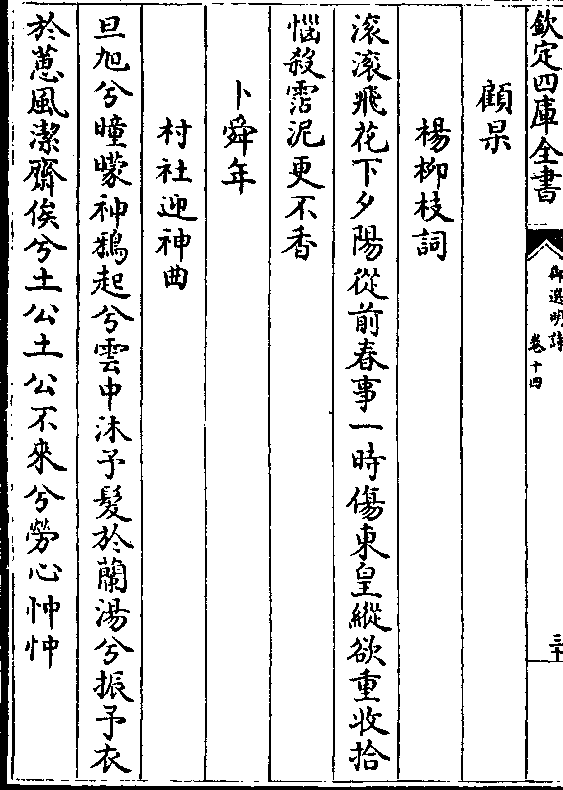 欽定四庫全書
御選明詩
卷十四
三十
顧杲
楊柳枝詞
滚滚飛花下夕陽從前春事一時傷東皇縱欲重收拾
惱殺霑泥更不香
卜舜年
村社迎神曲
旦旭兮曈曚神鵶起兮雲中沐予髮於蘭湯兮振予衣
於蕙風潔齋俟兮土公土公不來兮勞心忡忡